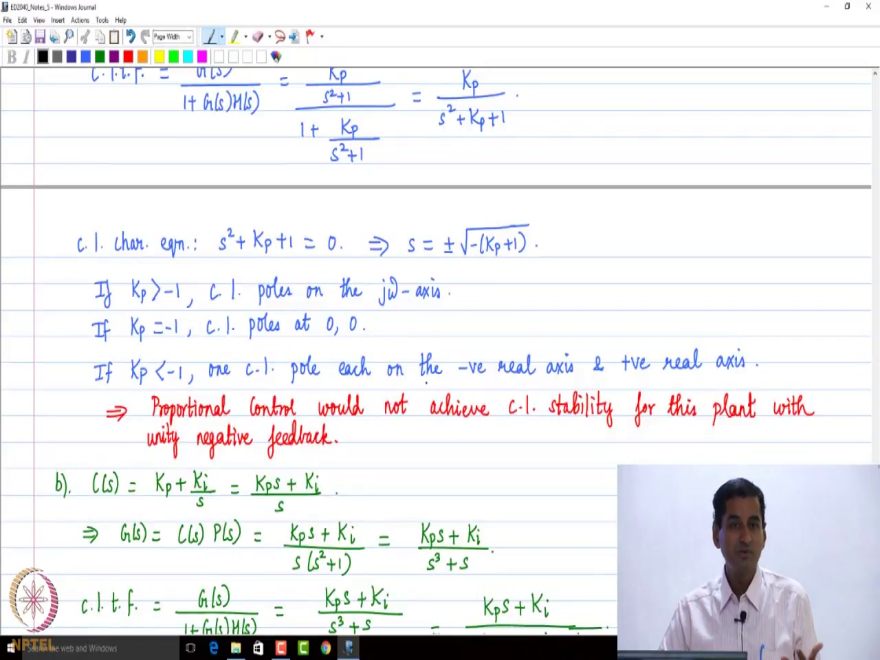 ED2040_Notes_5 - Windows Journal
File Edit View Insert Actions Tools Help
Page Width
C.l.t.f. = G(s) / (1+G(s)H(s)) = (Kp/(s²+1)) / (1+ Kp/(s²+1)) = Kp / (s²+Kp+1) .
c.l. char. eqn.: s²+Kp+1 = 0. ⇒ s = ±√-(Kp+1) .
If Kp>-1, c.l. poles on the jω-axis.
If Kp=-1, c.l. poles at 0, 0.
If Kp<-1, one c.l. pole each on the -ve real axis & +ve real axis.
⇒ Proportional Control would not achieve c.l. stability for this plant with
unity negative feedback.
b). C(s) = Kp + Ki/s = (Kps + Ki)/s .
⇒ G(s) = C(s) P(s) = (Kps + Ki) / (s(s²+1)) = (Kps + Ki) / (s³+s) .
c.l.t.f. = G(s) / (1+G(s)H(s)) = (Kps + Ki) / (s³+s) = Kps + Ki
NPTEL
the web and Windows